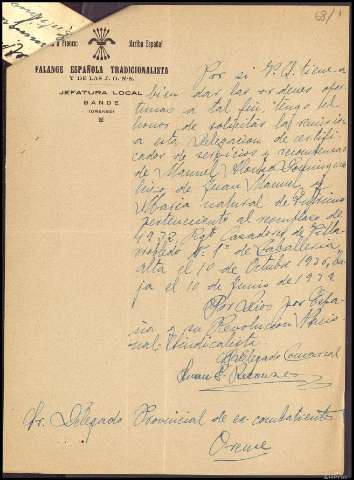 68/1
Saludo a Franco: ¡Arriba España!
FALANGE ESPAÑOLA TRADICIONALISTA
Y DE LAS J. O. N-S.
JEFATURA LOCAL
BANDE
(ORENSE)
Por si V.S. tiene a
bien dar las ordenes opor-
tunas a tal fin, tengo el
honor de solicitar la remisión
a esta Delegacion de certifi-
cados de servicios y recompensas
de Manuel Alonso Dominguez
hijo de Juan Manuel y
Maria natural de
perteneciente al reemplazo de
1932, Rgt. Cazadores de Villa-
rrobledo Nº 1º de Caballeria,
alta el 10 de Octubre 1936, ba-
ja el 10 de Junio de 1939
Por Dios, por Espa-
ña y su Revolución Nacio-
nal-Sindicalista.
El Delegado Comarcal
Juan
Sr. Delegado Provincial de ex-combatientes
Orense